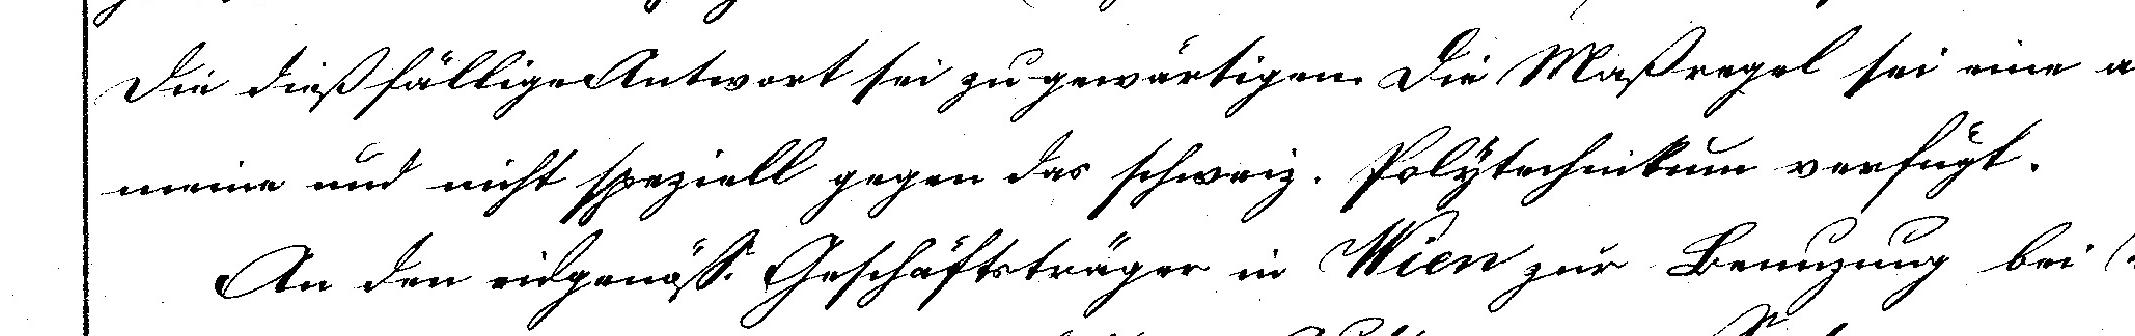 Die dießfällige Antwort sei zu gewärtigen. Die Maßregel sei eine a
meine und nicht speziell gegen das schweiz. Polytechnikum verfügt.
An den eidgenöss. Geschäftsträger in Wien zur Benuzung bei